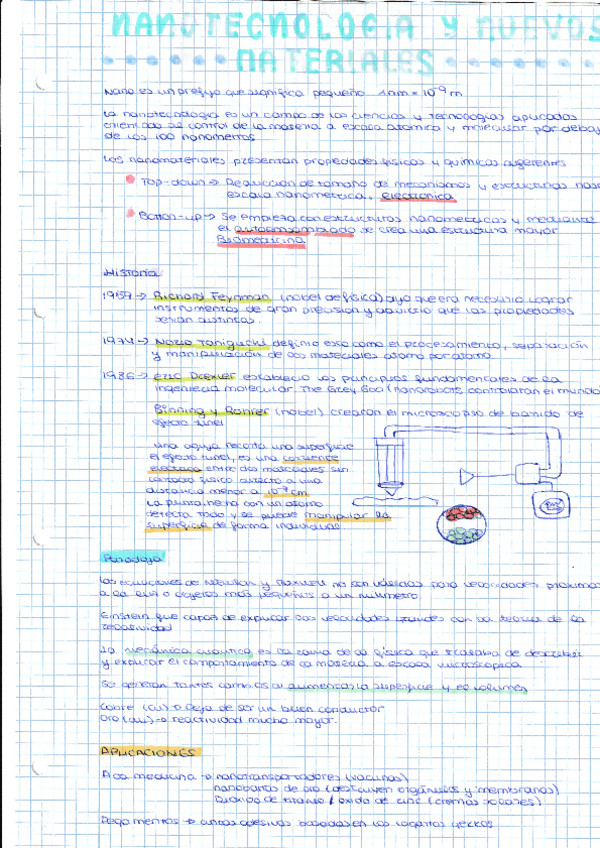 NANOTECNOLOGIA Y NUEVOS
MATERIALES
Nano es un prefijo que significa pequeño 1nm = 10⁻⁹ m
La nanotecnología es un campo de las ciencias y tecnologías aplicadas
orientado al control de la materia a escala atómica y molecular por debajo
de los 100 nanómetros
Los nanomateriales presentan propiedades físicas y químicas diferentes
Top-down → Reducción de tamaño de mecanismos y estructuras hasta
escala nanométrica. electrónica
Bottom-up → Se empieza con estructuras nanométricas y mediante
el autoensamblado se crea una estructura mayor
Biomedicina
Historia
1959 → Richard Feynman (nobel de física) dijo que era necesario lograr
instrumentos de gran precisión y que las propiedades
serían distintas.
1974 → Norio Taniguchi definió eso como el procesamiento, separación
y manipulación de los materiales átomo por átomo.
1986 → Eric Drexler estableció los principios fundamentales de la
ingeniería molecular. The Grey Goo (nanorobots controlaran el mundo
Binning y Rohrer (nobel) crearon el microscopio de barrido de
efecto túnel
una aguja recorre una superficie
el efecto túnel, es una corriente
eléctrica entre dos moléculas sin
contacto físico directo a una
distancia menor a 10⁻⁷ cm
La punta hecha con un átomo
detecta todo y se puede manipular la
superficie de forma individual
Paradoja
Las ecuaciones de Newton y Maxwell no son válidas para velocidades próximas
a la luz o objetos más pequeños a un milímetro.
Einstein fue capaz de explicar las velocidades grandes con la teoría de la
relatividad
La mecánica cuántica es la rama de la física que trataba de describir
y explicar el comportamiento de la materia a escala microscópica
Se generan tantos cambios al aumentar la superficie y el volumen
Cobre (Cu) → Deja de ser un buen conductor
Oro (Au) → reactividad mucho mayor.
APLICACIONES
A la medicina → nanotransportadores (vacunas)
de oro (destruyen orgánulos y membranas)
Dióxido de titanio / óxido de zinc (cremas solares)
Pegamentos → cintas adhesivas basadas en los lagartos geckos